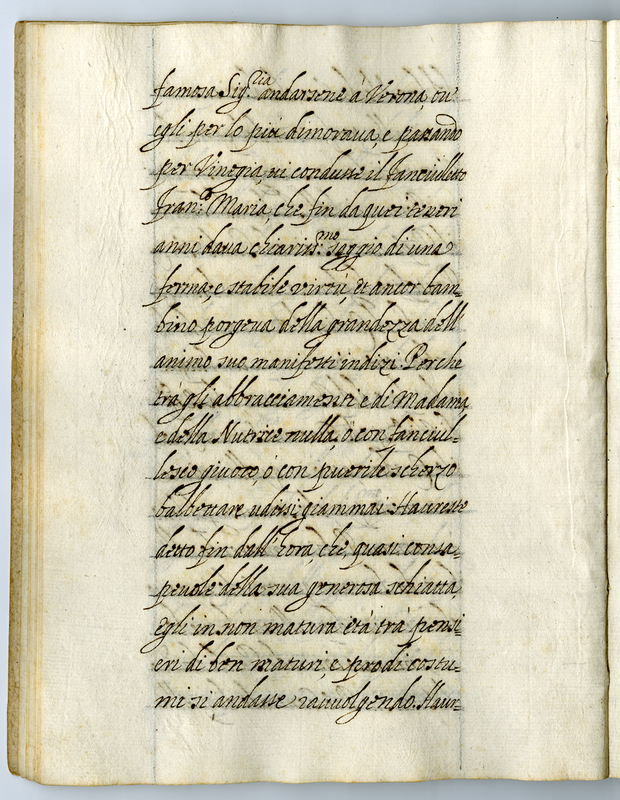 famosa Sig.ria andarsene à Verona, ou'
egli per lo più dimoraua, e passando
per Vinegia, ui condusse il fanciulletto
Fran.co Maria, che fin da quei teneri
anni daua chiariss.mo saggio di una
ferma, e stabile virtù, et ancor bam=
bino porgeva della grandezza dell'
animo suo manifesti indizi. Perche
trà gli abbracciamenti e di Madama,
e della Nutrice nulla, ò con fanciul=
lesco giuoco, ò con puerile scherzo
balbettare udissi giammai. Haureste
detto fin dall'hora, che quasi consa=
peuole della sua generosa schiatta
egli in non matura età trà pensi=
eri di ben maturi, e prodi costu=
mi si andasse rauuolgendo. Haur=